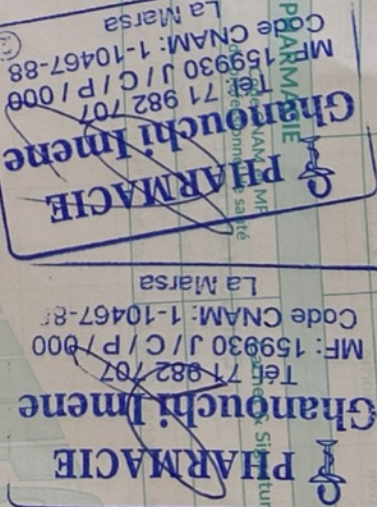 PHARMACIE
Ghanouchi Imene
Tél 71 982 707
MF: 159930 J / C / P / 000
Code CNAM: 1-10467-8
La Marsa
PHARMACIE
Ghanouchi Imene
Tél: 71 982 707
MF 159930 J / C / P / 000
Code CNAM: 1-10467-88
La Marsa
PHARMACIE
santé